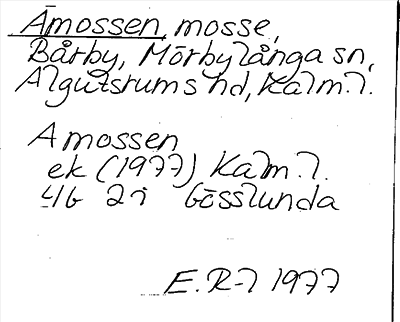 Åmossen, mosse,
Bårby, Mörbylånga sn,
Algutsrums hd, Kalm. l.
Amossen
ek (1977) Kalm. l.
4G 2i Gösslunda
E. R-l 1977